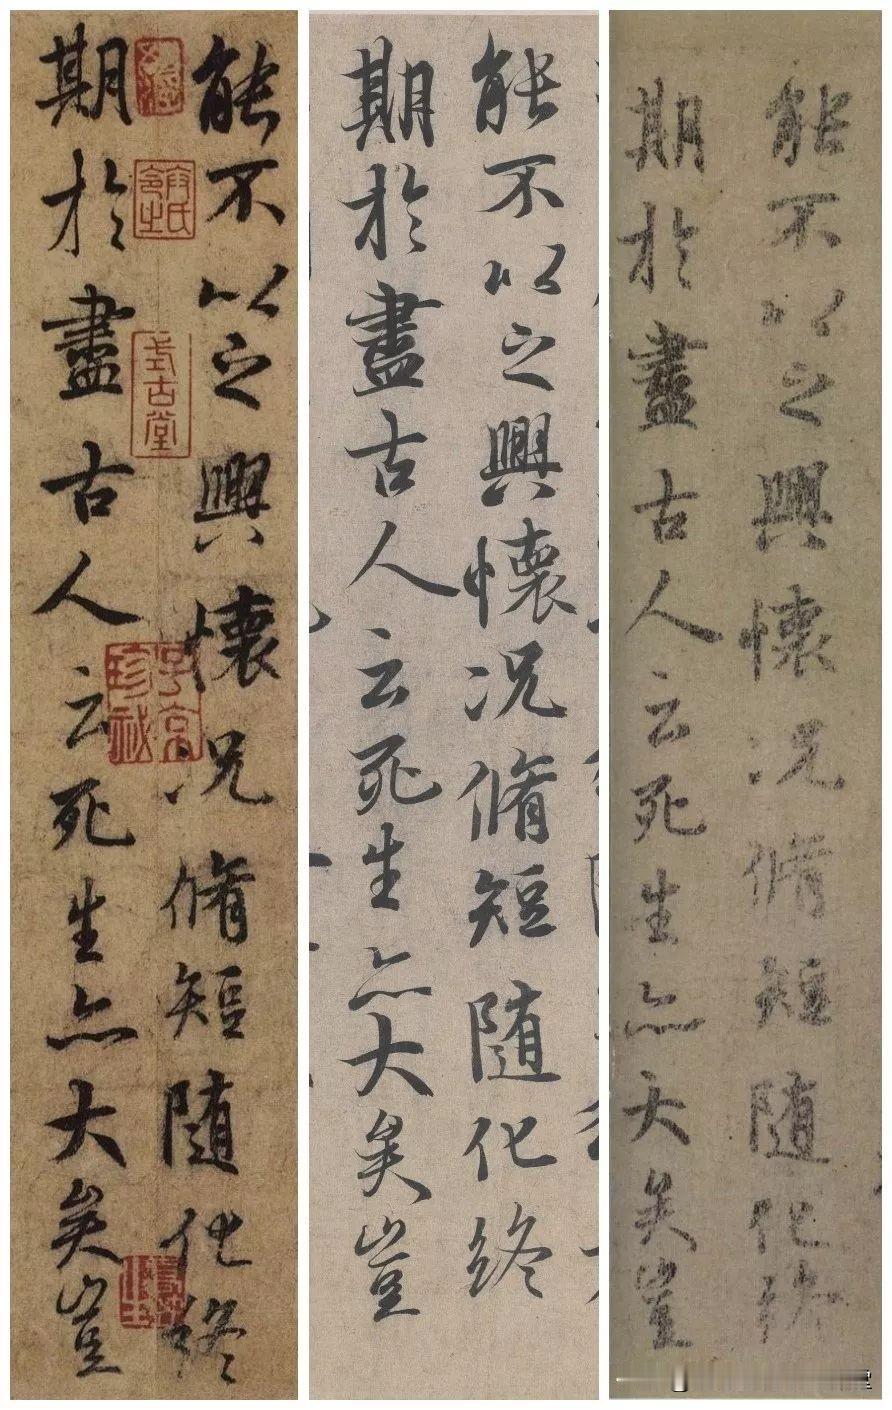 能不以之興懷况脩短随化終
期於盡古人云死生亦大矣豈
能不以之興懷况脩短随化終
期於盡古人云死生亦大矣豈
能不以之興懷况脩短随化終
期於盡古人云死生亦大矣豈
式古堂
子京珍祕